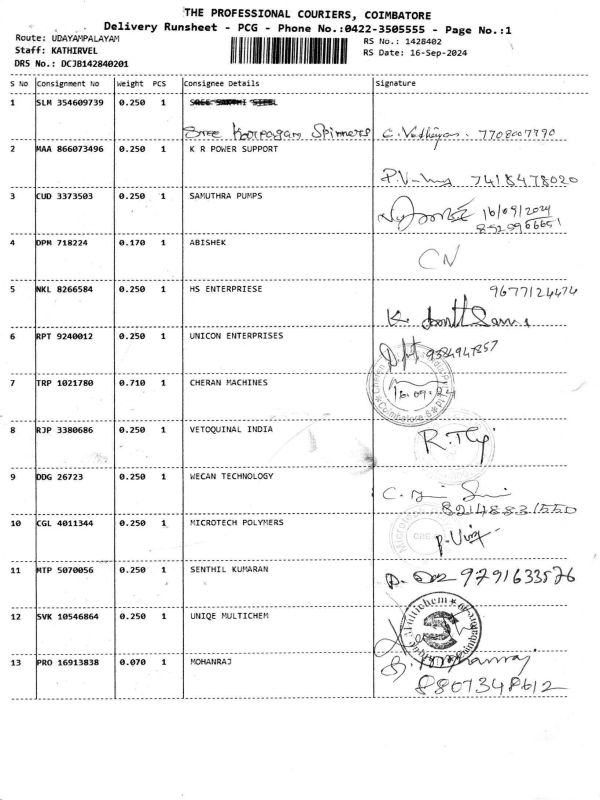 THE PROFESSIONAL COURIERS, COIMBATORE
Delivery Runsheet - PCG - Phone No.:0422-3505555 - Page No.:1
Route: UDAYAMPALAYAM
RS No.: 1428402
Staff: KATHIRVEL
RS Date: 16-Sep-2024
DRS No.: DCJB142840201
S No Consignment No Weight PCS Consignee Details Signature
1 SLM 354609739 0.250 1 SREE SAKTHI STEEL
Sree Karpagam Spinners C. 7708007790
2 MAA 866073496 0.250 1 K R POWER SUPPORT
7418478020
3 CUD 3373503 0.250 1 SAMUTHRA PUMPS
16/09/2024
4 DPM 718224 0.170 1 ABISHEK
CN
5 NKL 8266584 0.250 1 HS ENTERPRIESE
9677124474
K.
6 RPT 9240012 0.250 1 UNICON ENTERPRISES
9384947857
7 TRP 1021780 0.710 1 CHERAN MACHINES
Coimbatore
8 RJP 3380686 0.250 1 VETOQUINAL INDIA
9 DDG 26723 0.250 1 WECAN TECHNOLOGY
C.
82148831550
10 CGL 4011344 0.250 1 MICROTECH POLYMERS
11 MTP 5070056 0.250 1 SENTHIL KUMARAN
9791633576
12 SVK 10546864 0.250 1 UNIQE MULTICHEM
Multichem
13 PRO 16913838 0.070 1 MOHANRAJ
8807348612